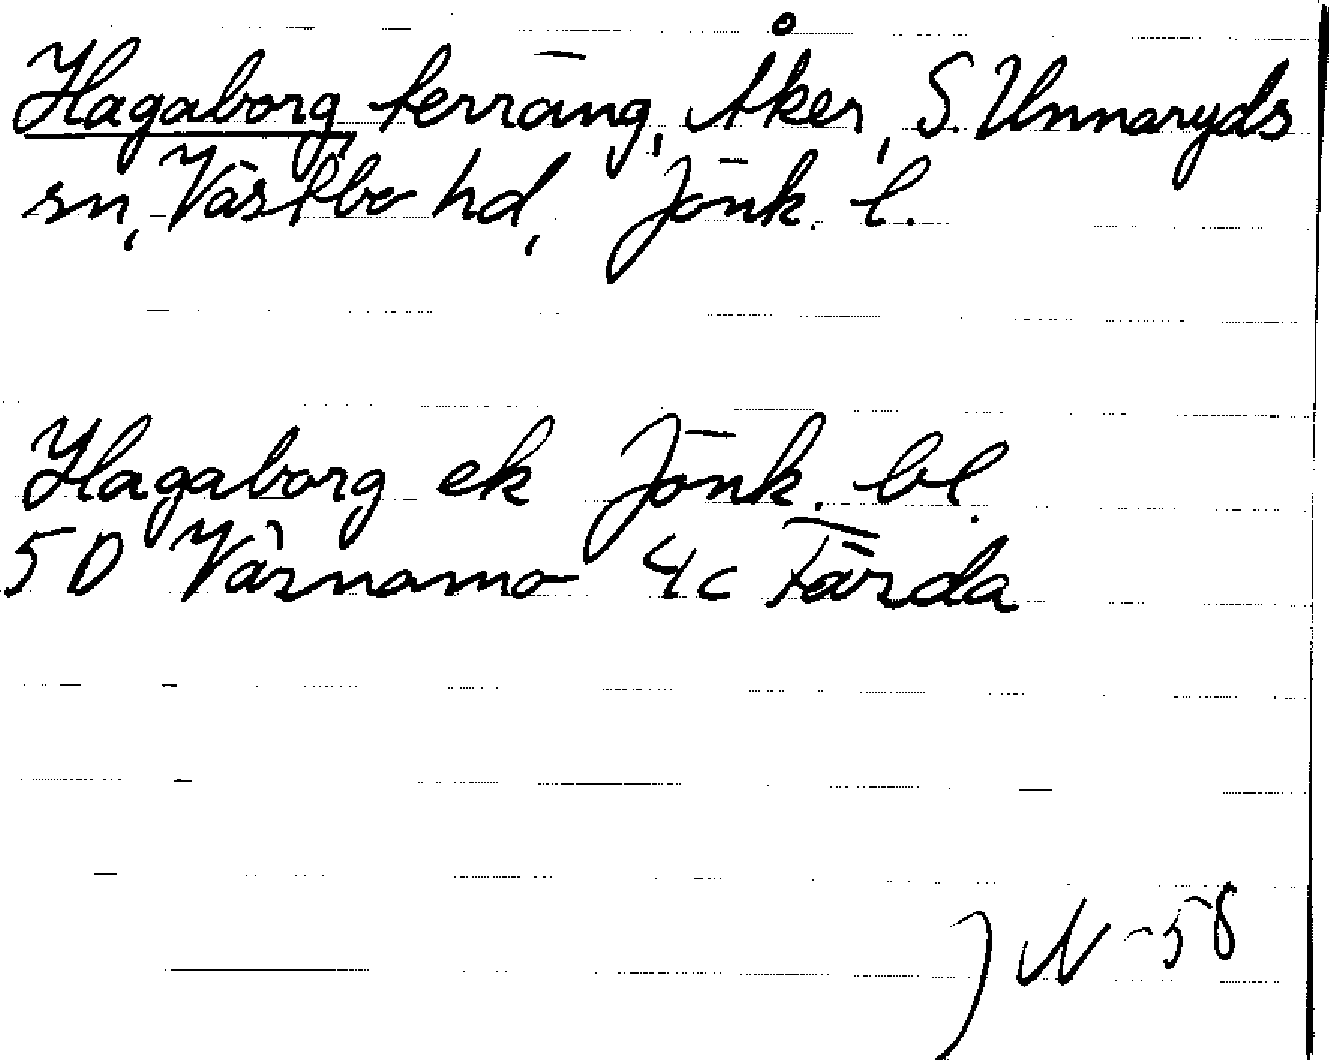 Hagaborg terräng, Åker, S. Unnaryds
sn, Västbo hd, Jönk. l.
Hagaborg ek Jönk. bl.
5D Värnamo 4c Färda
J N -58